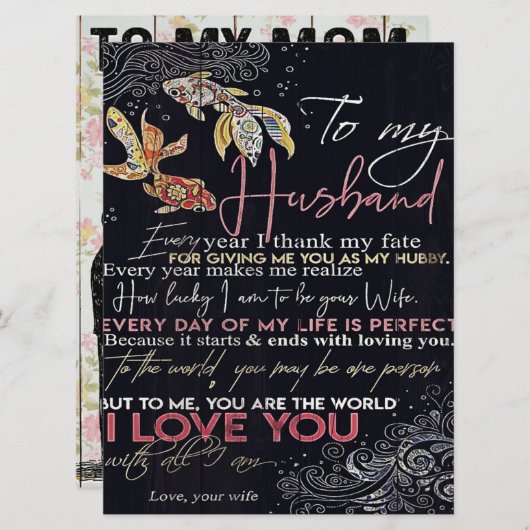 TO MY MOM
To my
Husband
Every year I thank my fate
FOR GIVING ME YOU AS MY HUBBY.
Every year makes me realize
How lucky I am to Be your Wife.
EVERY DAY OF MY LIFE IS PERFECT
Because it starts & ends with loving you.
To the world, you may be one person
BUT TO ME, YOU ARE THE WORLD
I LOVE YOU
with all I am
Love, your wife